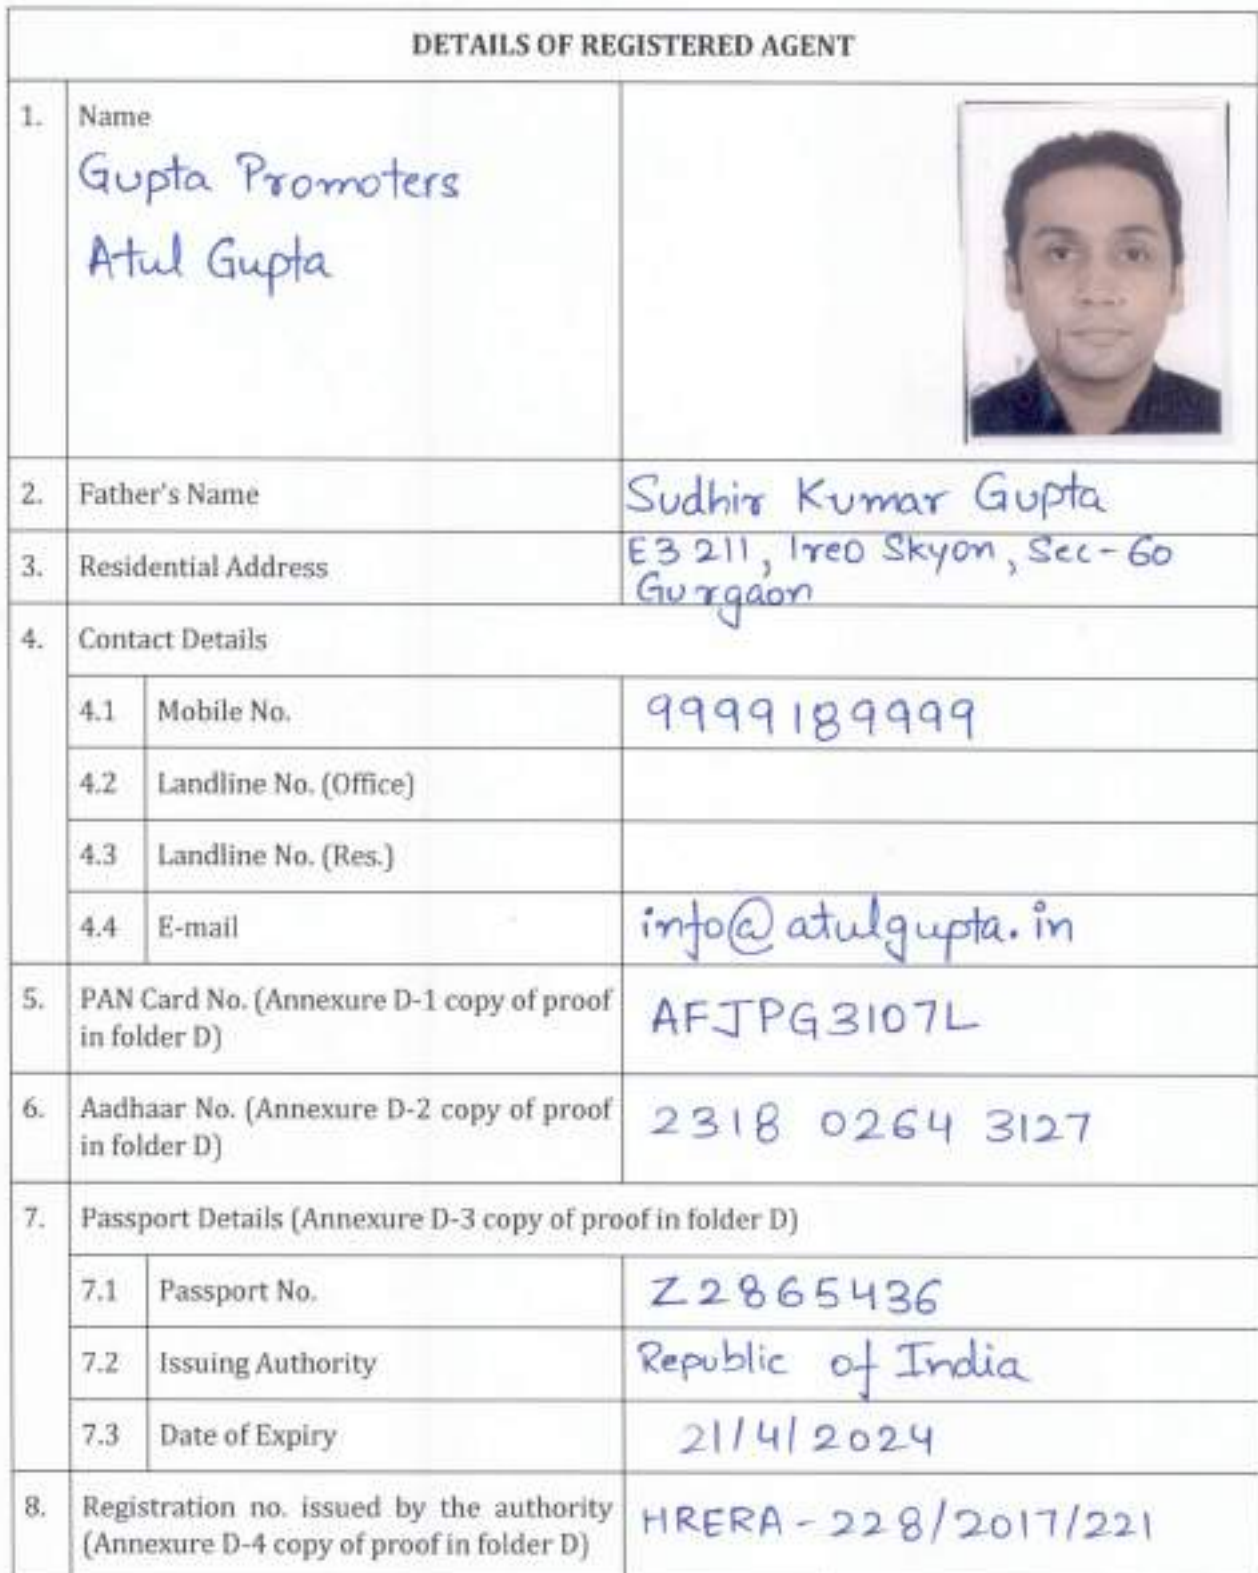 DETAILS OF REGISTERED AGENT
1. Name
Gupta Promoters
Atul Gupta
2. Father's Name Sudhir Kumar Gupta
3. Residential Address E3 211, Ireo Skyon, Sec-60
Gurgaon
4. Contact Details
4.1 Mobile No. 9999189999
4.2 Landline No. (Office)
4.3 Landline No. (Res.)
4.4 E-mail info@atulgupta.in
5. PAN Card No. (Annexure D-1 copy of proof
in folder D) AFJPG3107L
6. Aadhaar No. (Annexure D-2 copy of proof
in folder D) 2318 0264 3127
7. Passport Details (Annexure D-3 copy of proof in folder D)
7.1 Passport No. Z2865436
7.2 Issuing Authority Republic of India
7.3 Date of Expiry 21/4/2024
8. Registration no. issued by the authority
(Annexure D-4 copy of proof in folder D) HRERA-228/2017/221